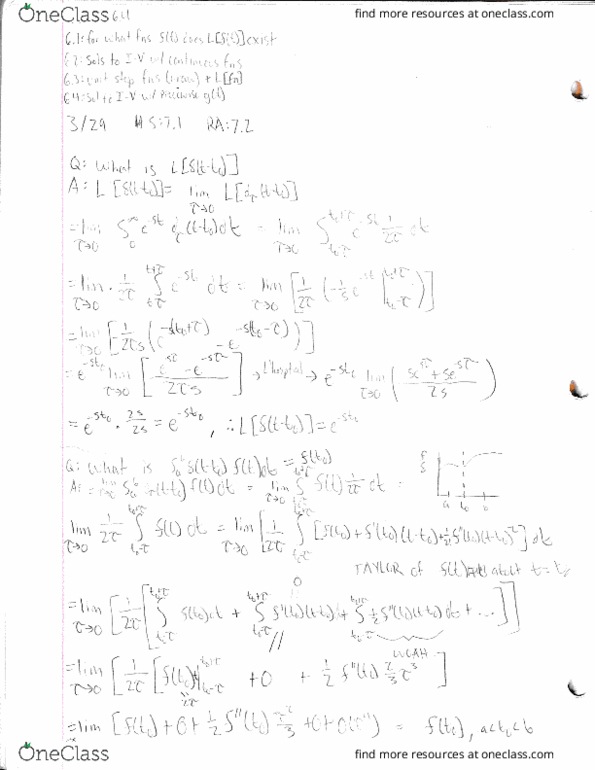 OneClass
find more resources at oneclass.com
6.4
6.1: for what fns f(t) does L[f(t)] exist
6.2: Sols to I-V w/ continuous fns
6.3: unit step fns + L[fn]
6.4: Sol to I-V w/ piecewise g(t)
3/29 HS: 7.1 RA: 7.2
Q: What is L[δ(t-t₀)]
A: L[δ(t-t₀)] = lim τ→0 L[d_τ(t-t₀)]
= lim τ→0 ∫₀^∞ e^-st d_τ(t-t₀)dt = lim τ→0 ∫_t₀-τ^t₀+τ e^-st 1/2τ dt
= lim τ→0 · 1/2τ ∫ e^-st dt = lim τ→0 [1/2τ (-1/s e^-st |_t₀-τ^t₀+τ)]
= lim τ→0 [1/2τs (e^-s(t₀+τ) - e^-s(t₀-τ))]
= e^-st₀ lim τ→0 [(e^sτ - e^-sτ)/2τs] → L'hospital → e^-st₀ lim τ→0 ((se^sτ + se^-sτ)/2s)
= e^-st₀ · 2s/2s = e^-st₀, ∴ L[δ(t-t₀)] = e^-st₀
Q: What is ∫ₐᵇ δ(t-t₀) f(t)dt = f(t₀)
A: = lim τ→0 ∫ₐᵇ d_τ(t-t₀) f(t)dt = lim τ→0 ∫_t₀-τ^t₀+τ f(t) 1/2τ dt =
a t₀ b
lim τ→0 1/2τ ∫_t₀-τ^t₀+τ f(t) dt = lim τ→0 [1/2τ ∫_t₀-τ^t₀+τ [f(t₀) + f'(t₀)(t-t₀) + 1/2 f''(t₀)(t-t₀)²] dt
TAYLOR of f(t) about t = t₀
0
= lim τ→0 [1/2τ [∫_t₀-τ^t₀+τ f(t₀)dt + ∫_t₀-τ^t₀+τ f'(t₀)(t-t₀) + ∫_t₀-τ^t₀+τ 1/2 f''(t₀)(t-t₀)dt + ...]]
= lim τ→0 [1/2τ [f(t₀)t |_t₀-τ^t₀+τ + 0 + 1/2 f''(t₀) 2/3 τ³]
2τ
= lim [f(t₀) + 0 + 1/2 f''(t₀) τ²/3 + 0 + O(τ⁴)] = f(t₀), a<t₀<b
OneClass
find more resources at oneclass.com